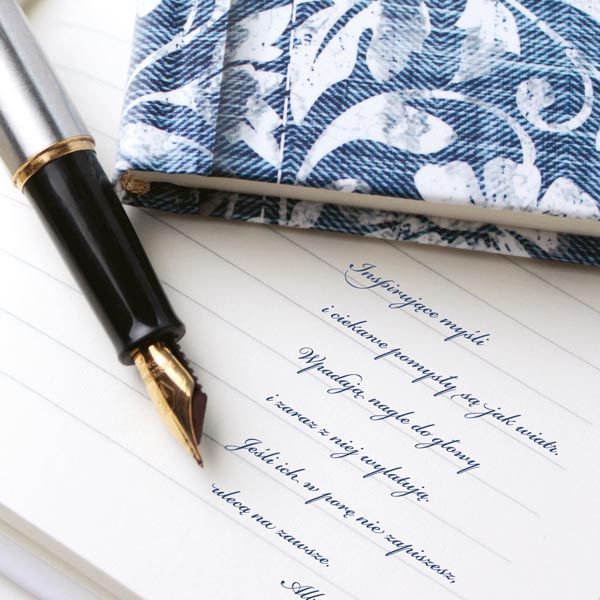 Inspirujące myśli
i ciekawe pomysły są jak wiatr.
Wpadają nagle do głowy
i zaraz z niej wylatują.
Jeśli ich w porę nie zapiszesz,
ulecą na zawsze.